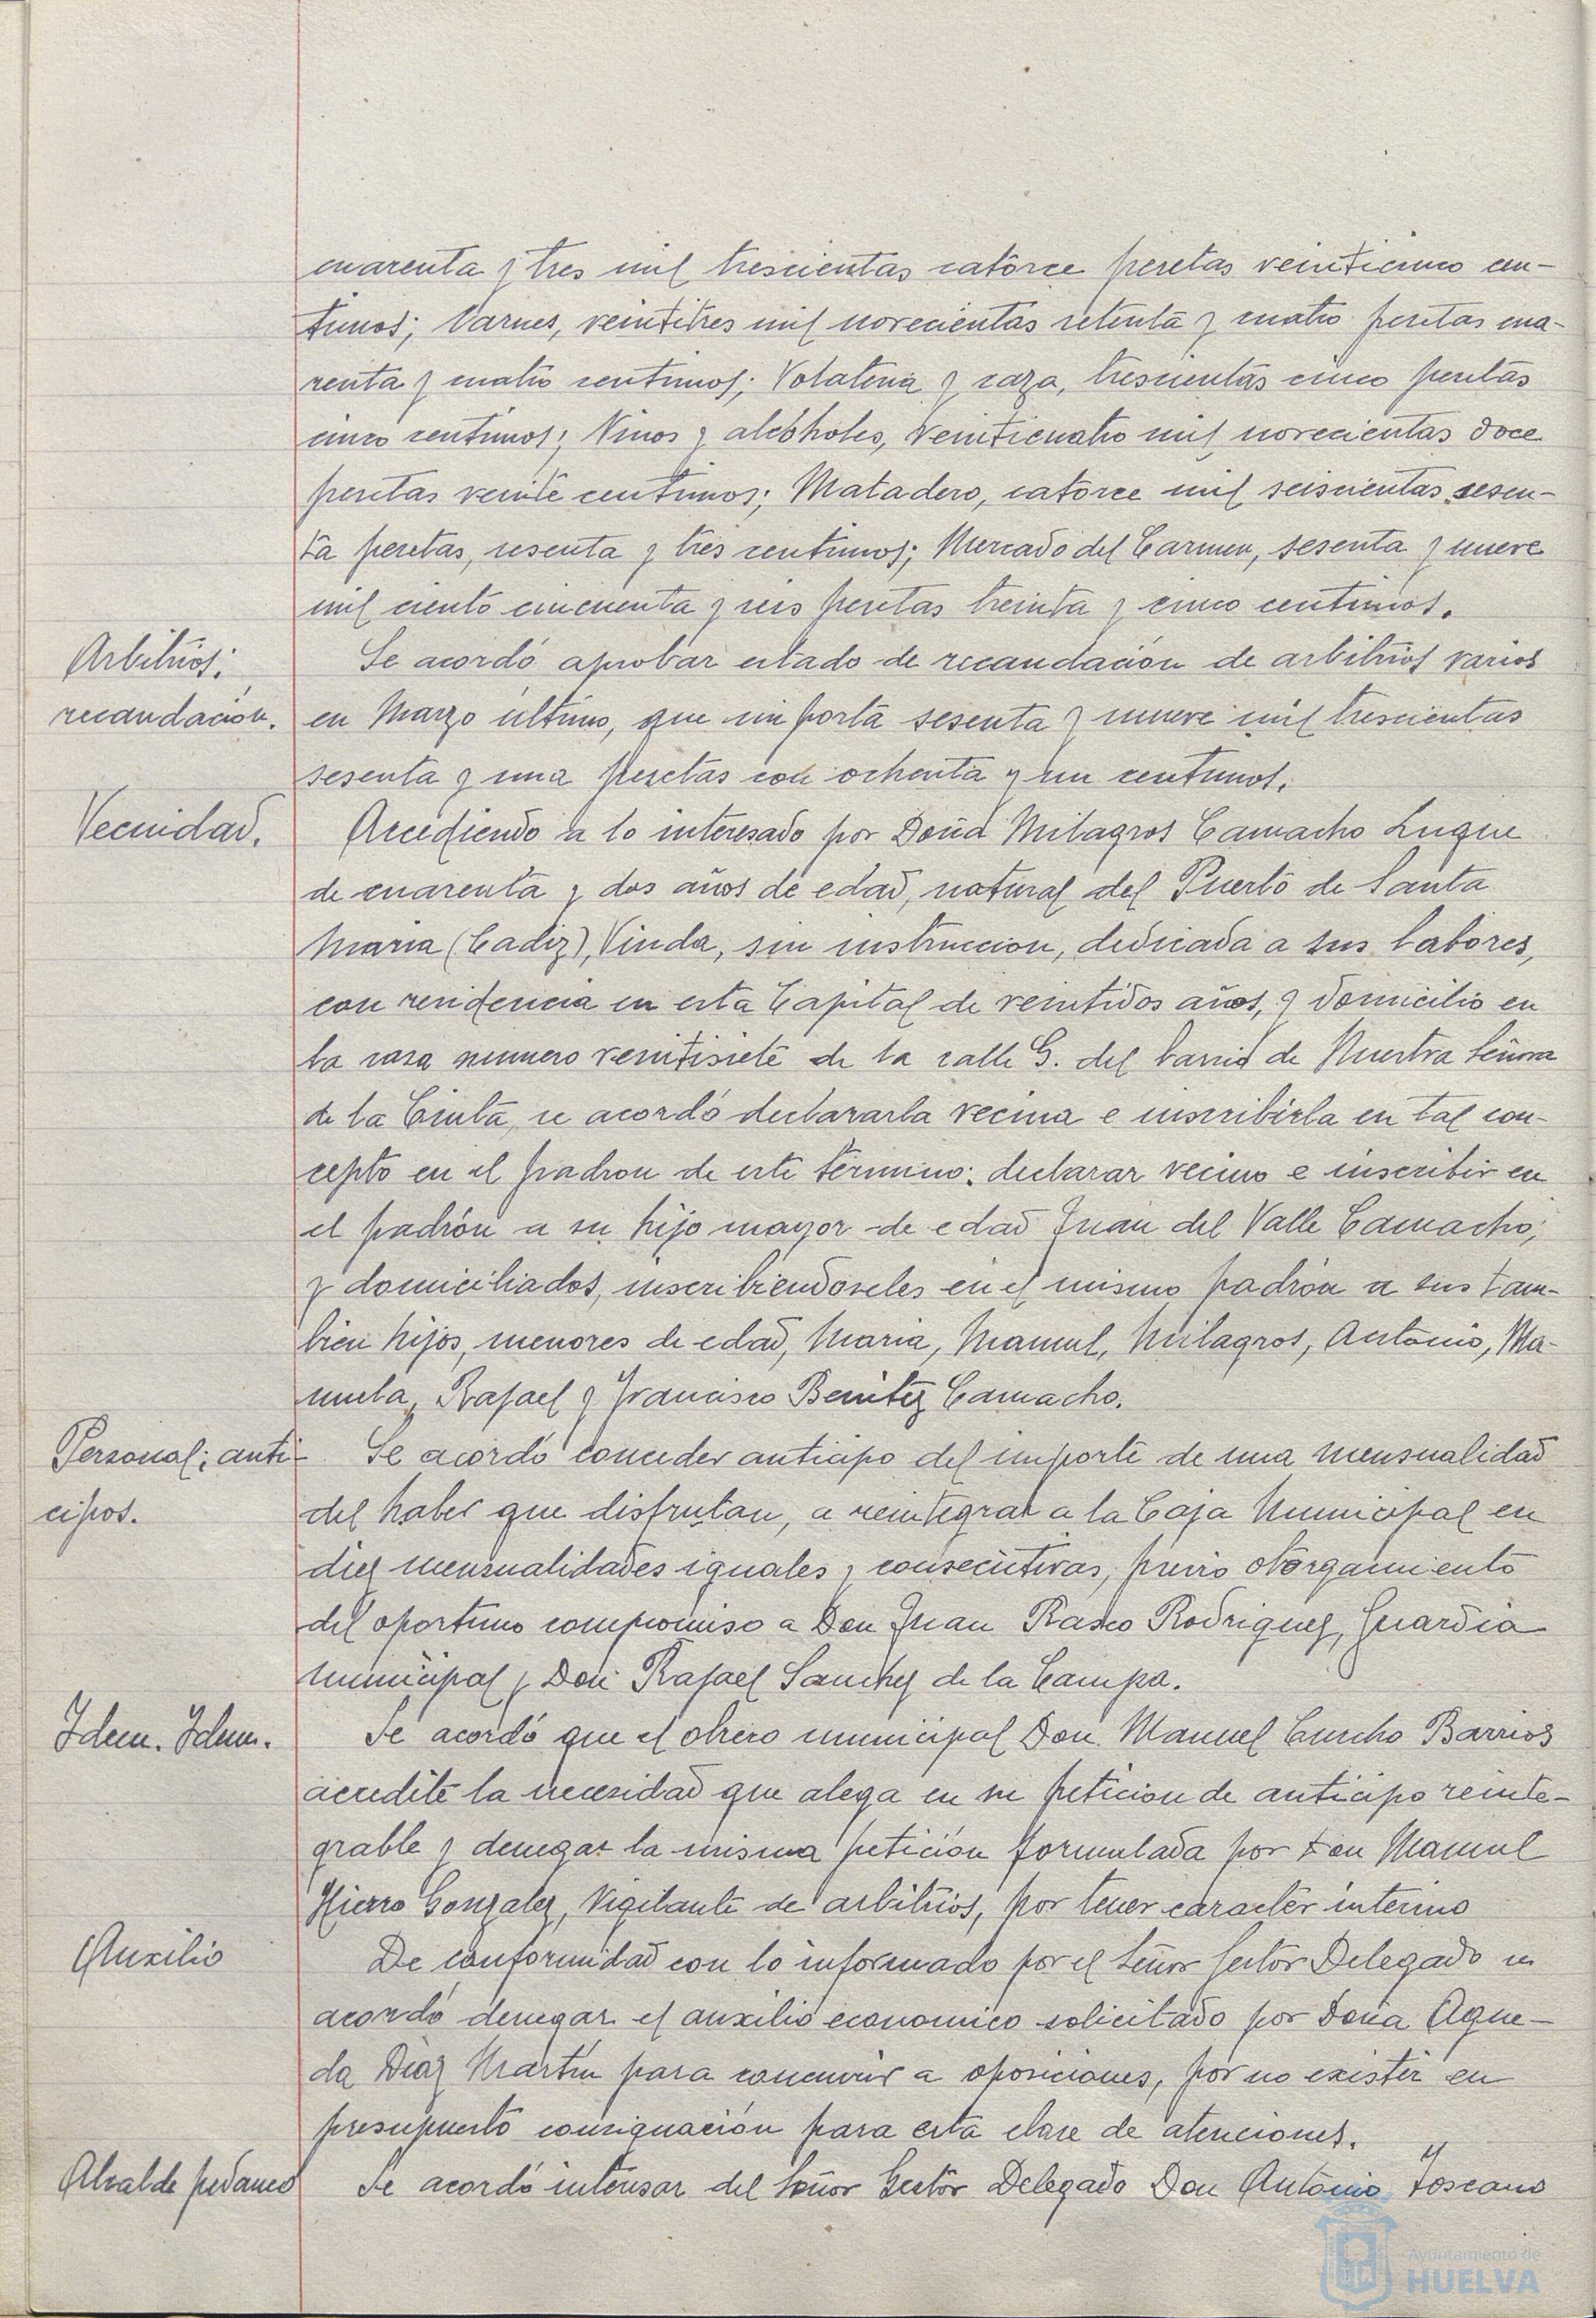 cuarenta y tres mil trescientas catorce pesetas veinticinco cen-
timos; Carnes, veintitres mil novecientas setenta y cuatro pesetas cua-
renta y cuatro centimos; Volateria y caza, trescientas cinco pesetas
cinco centimos; Vinos y alcoholes, veinticuatro mil novecientas doce
pesetas veinte centimos; Matadero, catorce mil seiscientas sesen-
ta pesetas, sesenta y tres centimos; Mercado del Carmen, sesenta y nueve
mil ciento cincuenta y seis pesetas treinta y cinco centimos.
Arbitrios;
recaudación.
Se acordó aprobar estado de recaudación de arbitrios varios
en Marzo último, que importa sesenta y nueve mil trescientas
sesenta y una pesetas con ochenta y un centimos.
Vecindad.
Accediendo a lo interesado por Doña Milagros Camacho Luque
de cuarenta y dos años de edad, natural del Puerto de Santa
Maria (Cadiz), Viuda, sin instruccion, dedicada a sus labores,
con residencia en esta Capital de veintidos años, y domicilio en
la casa numero veintisiete de la calle G. del barrio de Nuestra Señora
de la Cinta, se acordó declararla vecina e inscribirla en tal con-
cepto en el padron de este término; declarar vecino e inscribir en
el padrón a su hijo mayor de edad Juan del Valle Camacho;
y domiciliados, inscribiendoseles en el mismo padrón a sus tam-
bien hijos, menores de edad, Maria, Manuel, Milagros, Antonio, Ma-
nuela, Rafael y Francisco Benitez Camacho.
Personal; anti-
cipos.
Se acordó conceder anticipo del importe de una mensualidad
del haber que disfrutan, a reintegrar a la Caja Municipal en
diez mensualidades iguales y consecutivas, previo otorgamiento
del oportuno compromiso a Don Juan Rasco Rodriguez, Guardia
Municipal y Don Rafael Sanchez de la Campa.
Idem. Idem.
Se acordó que el obrero municipal Don Manuel Barrios
acredite la necesidad que alega en su peticion de anticipo reinte-
grable y denegar la misma petición formulada por Don Manuel
Hierro Gonzalez, Vigilante de arbitrios, por tener caracter interino
Auxilio
De conformidad con lo informado por el Señor Gestor Delegado se
acordó denegar el auxilio economico solicitado por Doña Ague-
da Diaz Martin para concurrir a oposiciones, por no existir en
presupuesto consignación para esta clase de atenciones.
Alcalde pedaneo
Se acordó interesar del Señor Gestor Delegado Don Antonio Toscano
Ayuntamiento de
HUELVA